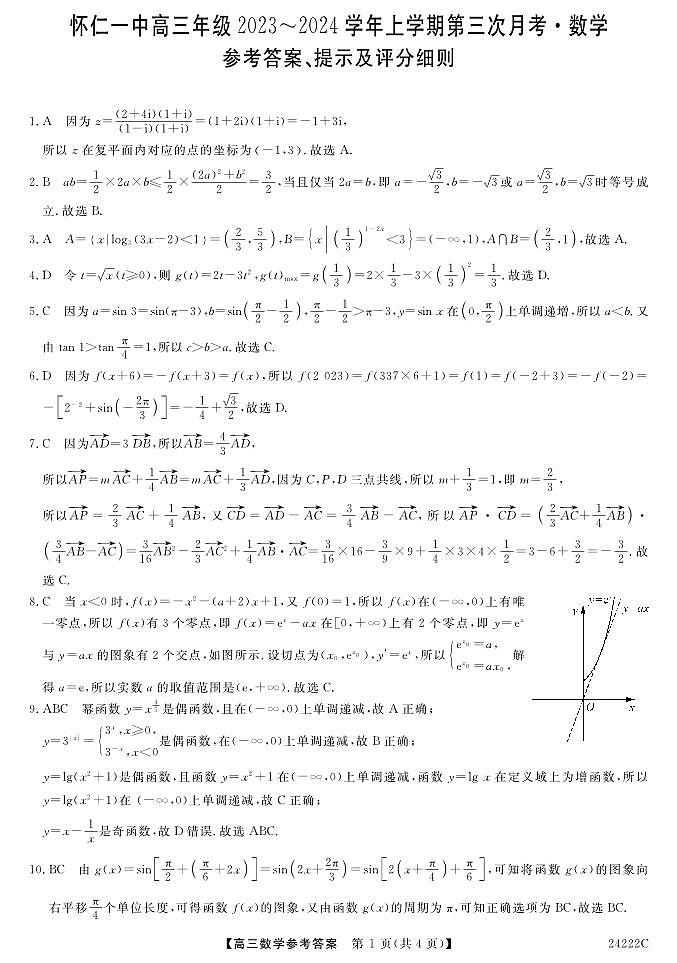 怀仁一中高三年级 2023～2024 学年上学期第三次月考·数学
参考答案、提示及评分细则
1. A 因为 z=\frac{(2+4i)(1+i)}{(1-i)(1+i)}=(1+2i)(1+i)=-1+3i,
所以 z 在复平面内对应的点的坐标为(-1,3).故选 A.
2. B ab=\frac{1}{2}×2a×b≤\frac{1}{2}×\frac{(2a)^2+b^2}{2}=\frac{3}{2},当且仅当 2a=b,即 a=-\frac{\sqrt{3}}{2},b=-\sqrt{3}或 a=\frac{\sqrt{3}}{2},b=\sqrt{3}时等号成
立.故选 B.
3. A A={x|log₃(3x-2)<1}=(\frac{2}{3},\frac{5}{3}),B={x|(\frac{1}{3})^{1-2x}<3}=(-∞,1),A∩B=(\frac{2}{3},1),故选 A.
4. D 令 t=\sqrt{x}(t≥0),则 g(t)=2t-3t²,g(t)_{max}=g(\frac{1}{3})=2×\frac{1}{3}-3×(\frac{1}{3})²=\frac{1}{3}.故选 D.
5. C 因为 a=sin 3=sin(π-3),b=sin(\frac{π}{2}-\frac{1}{2}),\frac{π}{2}-\frac{1}{2}>π-3,y=sin x 在(0,\frac{π}{2})上单调递增,所以 a<b.又
由 tan 1>tan \frac{π}{4}=1,所以 c>b>a.故选 C.
6. D 因为 f(x+6)=-f(x+3)=f(x),所以 f(2 023)=f(337×6+1)=f(1)=f(-2+3)=-f(-2)=
-[2^{-2}+sin(-\frac{2π}{3})]=-\frac{1}{4}+\frac{\sqrt{3}}{2},故选 D.
7. C 因为\overrightarrow{AD}=3\overrightarrow{DB},所以\overrightarrow{AB}=\frac{4}{3}\overrightarrow{AD},
所以\overrightarrow{AP}=m\overrightarrow{AC}+\frac{1}{4}\overrightarrow{AB}=m\overrightarrow{AC}+\frac{1}{3}\overrightarrow{AD},因为 C,P,D 三点共线,所以 m+\frac{1}{3}=1,即 m=\frac{2}{3},
所以\overrightarrow{AP}=\frac{2}{3}\overrightarrow{AC}+\frac{1}{4}\overrightarrow{AB},又\overrightarrow{CD}=\overrightarrow{AD}-\overrightarrow{AC}=\frac{3}{4}\overrightarrow{AB}-\overrightarrow{AC},所以\overrightarrow{AP}·\overrightarrow{CD}=(\frac{2}{3}\overrightarrow{AC}+\frac{1}{4}\overrightarrow{AB})·
(\frac{3}{4}\overrightarrow{AB}-\overrightarrow{AC})=\frac{3}{16}\overrightarrow{AB}²-\frac{2}{3}\overrightarrow{AC}²+\frac{1}{4}\overrightarrow{AB}·\overrightarrow{AC}=\frac{3}{16}×16-\frac{3}{9}×9+\frac{1}{4}×3×4×\frac{1}{2}=3-6+\frac{3}{2}=-\frac{3}{2}.故
选 C.
8. C 当 x<0 时,f(x)=-x²-(a+2)x+1,又 f(0)=1,所以 f(x)在(-∞,0)上有唯
一零点,所以 f(x)有 3 个零点,即 f(x)=e^x-ax 在[0,+∞)上有 2 个零点,即 y=e^x
与 y=ax 的图象有 2 个交点,如图所示.设切点为(x₀,e^{x₀}),y'=e^x,所以{e^{x₀}=a, e^{x₀}=ax₀, 解
得 a=e,所以实数 a 的取值范围是(e,+∞).故选 C.
y
y=e^x
y=ax
O
x
9. ABC 幂函数 y=x^{\frac{4}{5}}是偶函数,且在(-∞,0)上单调递减,故 A 正确;
y=3^{|x|}={3^x,x≥0, 3^{-x},x<0 是偶函数,在(-∞,0)上单调递减,故 B 正确;
y=lg(x²+1)是偶函数,且函数 y=x²+1 在(-∞,0)上单调递减,函数 y=lg x 在定义域上为增函数,所以
y=lg(x²+1)在 (-∞,0)上单调递减,故 C 正确;
y=x-\frac{1}{x}是奇函数,故 D 错误.故选 ABC.
10. BC 由 g(x)=sin[\frac{π}{2}+(\frac{π}{6}+2x)]=sin(2x+\frac{2π}{3})=sin[2(x+\frac{π}{4})+\frac{π}{6}],可知将函数 g(x)的图象向
右平移\frac{π}{4}个单位长度,可得函数 f(x)的图象,又由函数 g(x)的周期为 π,可知正确选项为 BC,故选 BC.
【高三数学参考答案 第 1 页(共 4 页)】 24222C